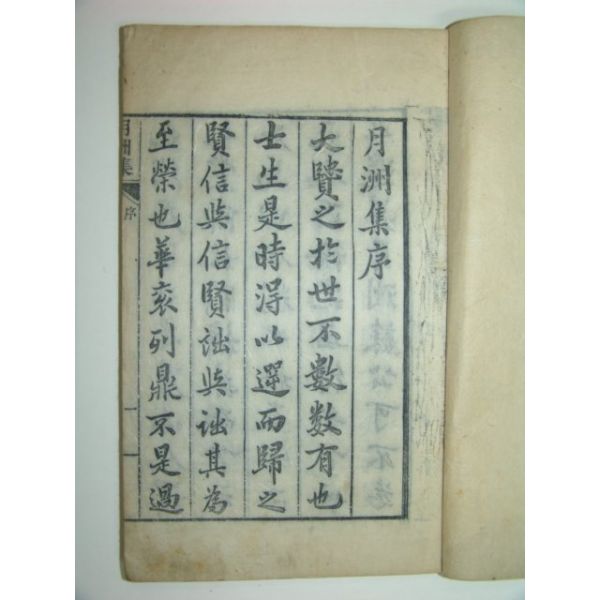 月洲集序
大賢之於世不數數有也
士生是時淂以選而歸之
賢信與信賢詘與詘其為
至榮也華衮列鼎不是過
月洲集
序
一